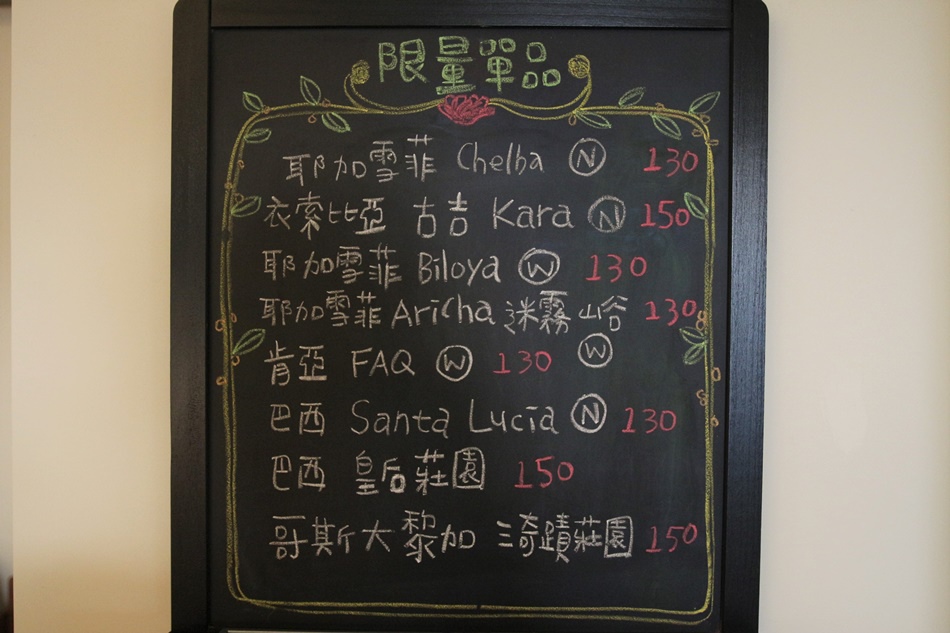 限量單品
耶加雪菲 Chelba Ⓝ 130
衣索比亞 古吉 Kara Ⓝ 150
耶加雪菲 Biloya Ⓦ 130
耶加雪菲 Aricha 迷霧山谷 130
肯亞 FAQ Ⓦ 130 Ⓦ
巴西 Santa Lucia Ⓝ 130
巴西 皇后莊園 150
哥斯大黎加 奇蹟莊園 150